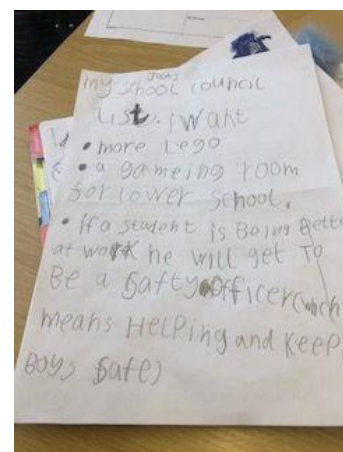 Josh's
my school council
List. i want
• more Lego
• a gameing room
for Lower school.
• if a student is Being Bette
at work he will get To
Be a Safty officer (which
means HeLPing and Keep
Boys Safe)